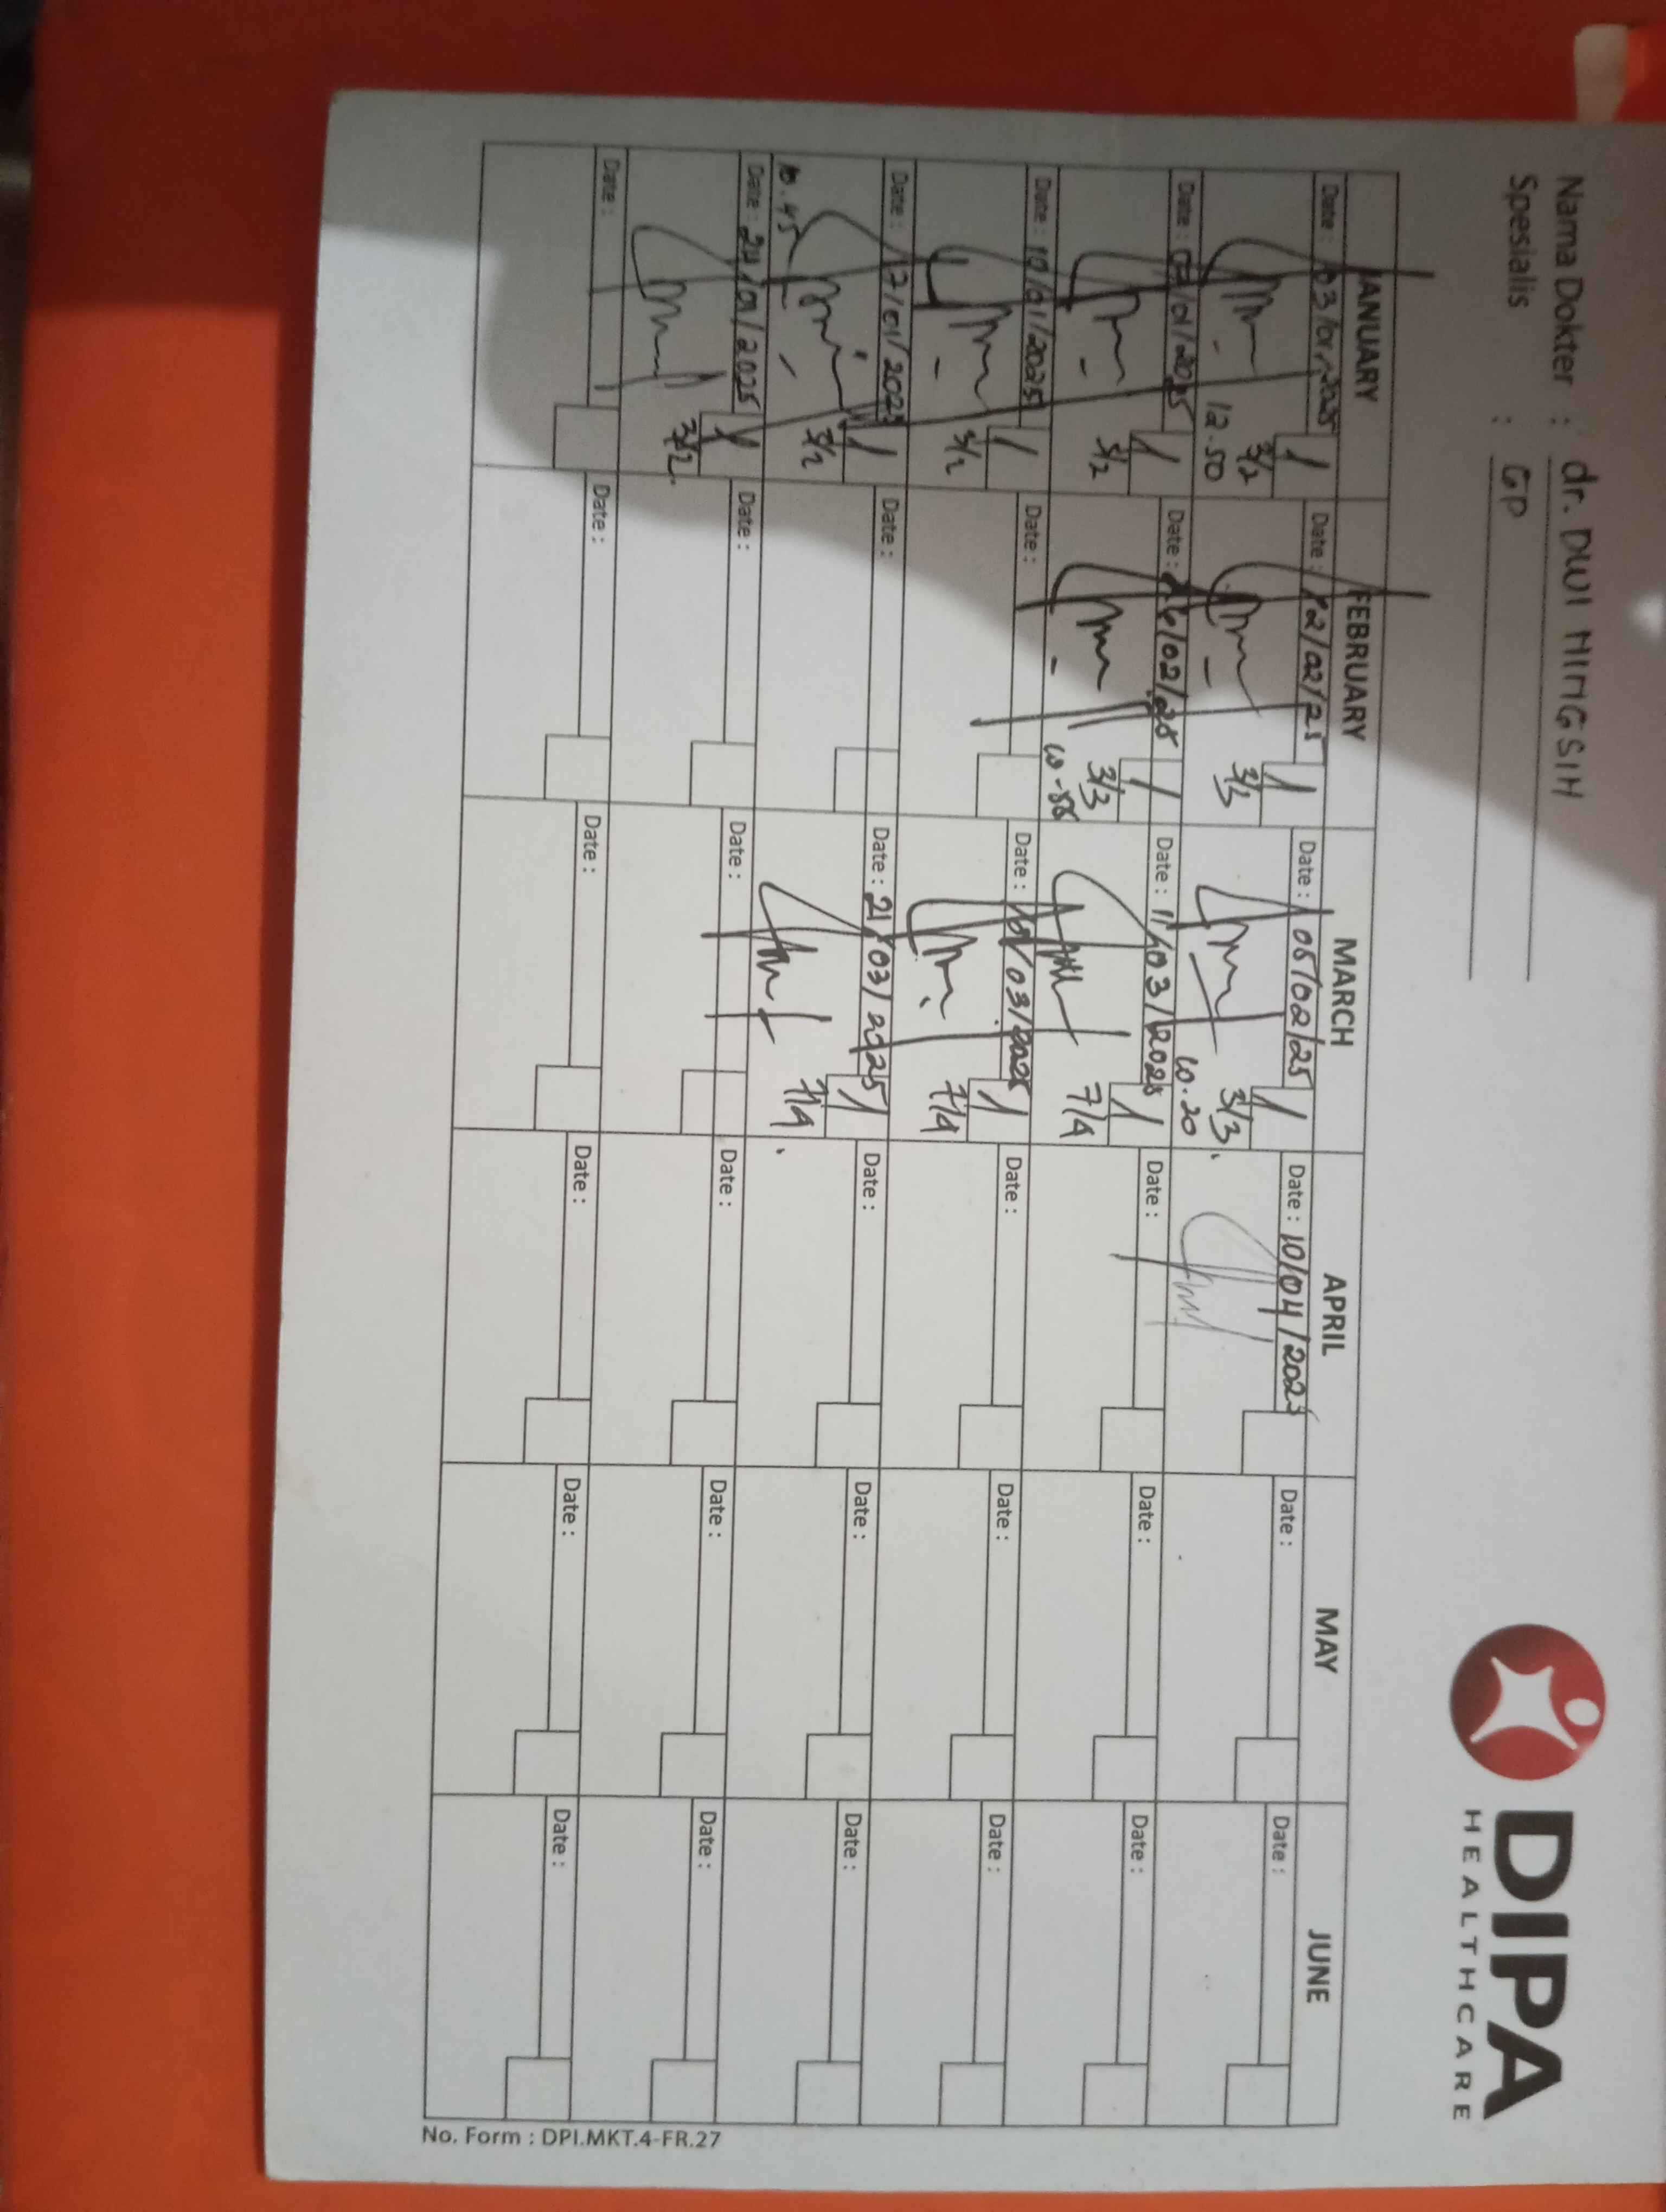 DIPA
HEALTHCARE
Nama Dokter : dr. DWI NINGSIH
Spesialis : GP
JANUARY FEBRUARY MARCH APRIL MAY JUNE
Date : 03/01/2025 Date : 12/02/25 Date : 05/02/25 Date : 10/04/2025 Date : Date :
3/2 3/3 3/3
12.50 10.20
Date : 07/01/2025 Date : 26/02/25 Date : 11/03/2025 Date : Date : Date :
3/2 3/3 7/4
Date : 10/01/2025 Date : Date : /03/2025 Date : Date : Date :
3/2 7/4
Date : 17/01/2025 Date : Date : 21/03/2025 Date : Date : Date :
3/2 7/4
10.45
Date : 24/01/2025 Date : Date : Date : Date : Date :
3/2
Date : Date : Date : Date : Date : Date :
No. Form : DPI.MKT.4-FR.27